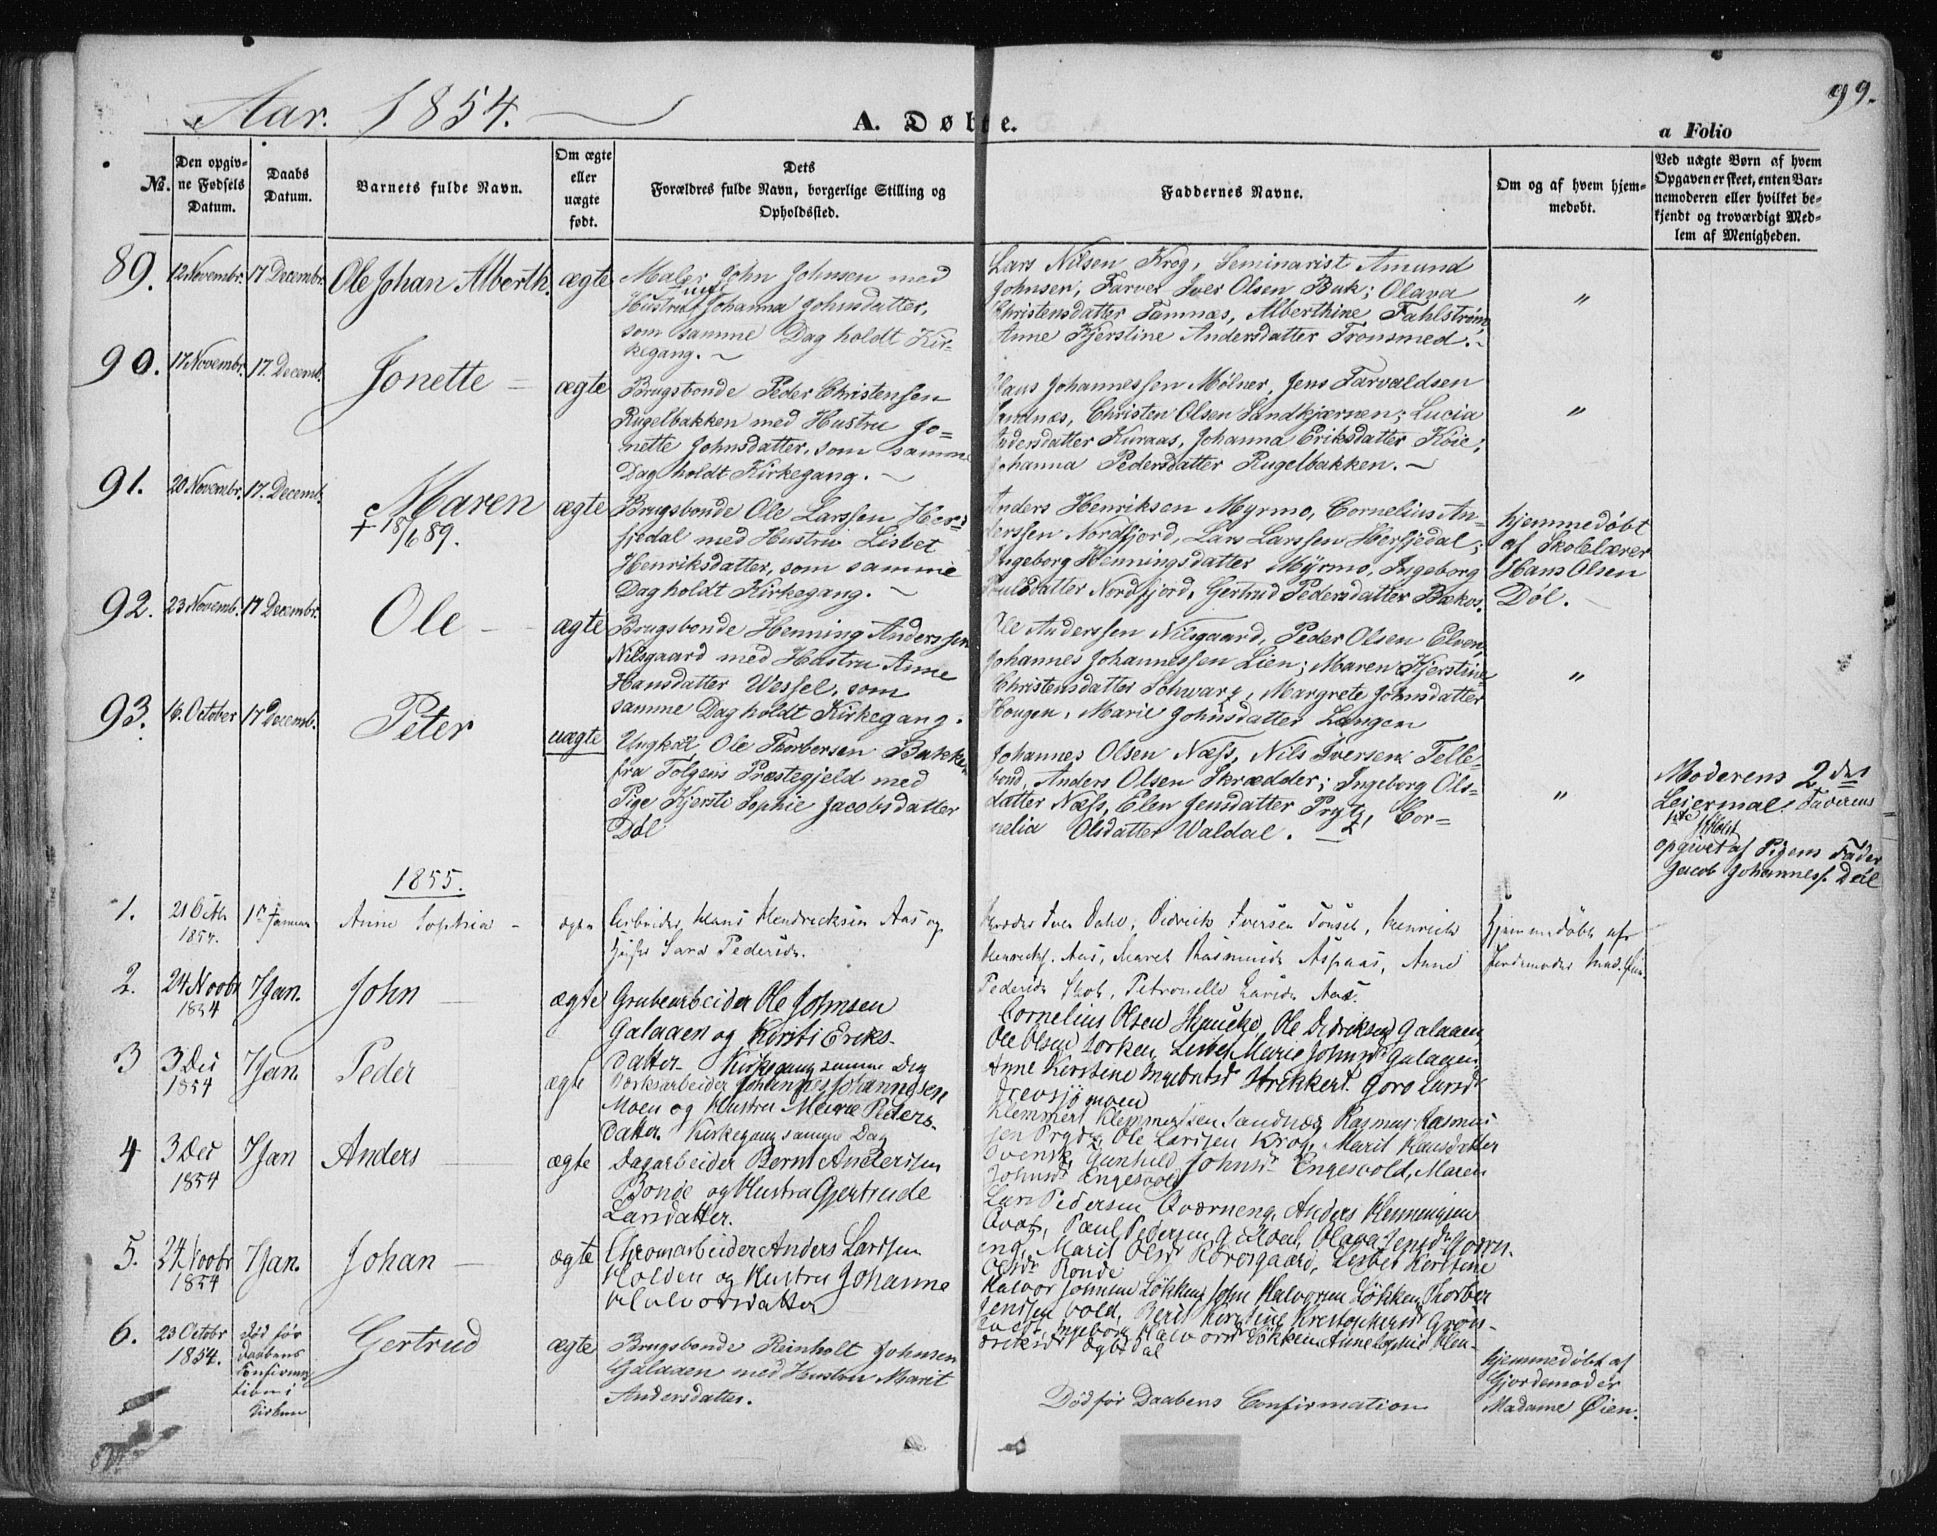 Aar. 1854.
99.
A. Døbte.
a Folio
No.
Den opgiv-
ne Fødsels
Datum.
Daabs
Datum.
Barnets fulde Navn.
Om ægte
eller
uægte
født.
Dets
Forældres fulde Navn, borgerlige Stilling og
Opholdssted.
Faddernes Navne.
Om og af hvem hjem-
medøbt.
Ved uægte Børn af hvem
Opgaven er skeet, enten Bar-
nemoderen eller hvilket be-
kjendt og troværdigt Med-
lem af Menigheden.
89. 12 Novembr. 17 Decembr. Ole Johan Alberth. ægte
Maler John Johnsen med
Hustru Johanna Johnsdatter,
som samme Dag holdt Kir-
kegang.
Lars Nilsen Krog, Seminarist Amund
Johnsen, Farver Iver Olsen Buk; Olava
Christensdatter Tamnæs, Alberthine Fahlstrøm,
Anne Kjerstine Andersdatter Tronsmed.
"
90. 17 Novembr. 17. Decemb. Jonette ægte
Brugsbonde Peder Christensen
Rugelbakken med Hustru Jo-
nette Johnsdatter, som samme
Dag holdt Kirkegang.
Claus Johannessen Mølner, Jens Tarvaldsen
Sandnæs, Christen Olsen Sandkjærnen; Lucia
Andersdatter Kuraas, Johanna Eriksdatter Køie;
Johanna Pedersdatter Rugelbakken.
"
91. 20 Novembr. 17. Decemb. Maren ægte
† 18/6 89.
Brugsbonde Ole Larssen Her-
sjødal med Hustru Lisbet
Henriksdatter, som samme
Dag holdt Kirkegang.
Anders Henriksen Myrmo, Cornelius An-
derssen Nordfjord, Lars Larssen Hersjedal;
Ingeborg Henningsdatter Myrmo, Ingeborg
Poulsdatter Nordfjord, Gertrud Pedersdatter Bækos.
hjemmedøbt
af Skolelærer
Hans Olsen
Døl.
92. 23 Novemb. 17 Decembr. Ole ægte
Brugsbonde Henning Anderssen
Nilsgaard med Hustru Anne
Hansdatter Wessel, som
samme Dag holdt Kirkegang.
Ole Anderssen Nilsgaard, Peder Olsen Elven,
Johannes Johannessen Lien; Maren Kjerstine
Christensdatter Schwarz, Margrete Johnsdatter
Hougen, Marie Johnsdatter Langen
"
93. 16. October 17 Decemb. Peter uægte
Ungkal Ole Thorbersen Bakken
fra Tolgens Præstegjeld med
Pige Kjersti Sophie Jacobsdatter
Døl
Johannes Olsen Næss, Nils Iversen Telle-
bond, Anders Olsen Skrædder; Ingeborg Ols-
datter Næss, Elen Jensdatter Prytz, Cor-
nelia Olsdatter Waldal.
"
Moderens 2det
Leiermaal, Faderens
1ste
opgivet af Pigens Fader
Jacob Johanness. Døl
1855.
1. 21 Octb. 1ste Januar Anne Sophia ægte
1854.
Arbeider Hans Hendricksen Aas og
Sara Pedersd.
Iver Dahl, Didrick Iversen Tønset, Henrich
Henrichs. Aas, Maret Rasmusd. Aspaas, Anne
Pedersd. Petronelle Larsd. Aas.
Hjemmedøbt af
Jordemoder Mad. Øien.
2. 24 Novbr 7 Jan. John ægte
1854
Grubearbeider Ole Johnsen
Galaaen og Kersti Eriks-
datter. Kirkegang samme Dag
Cornelius Olsen Skancke, Ole Didriksen Galaaen,
Ole Olsen Lorken, Lisbet Marie Johnsd. Galaaen,
Anne Kerstine Ingebrtsd. Strikkert. Goro Larsd.
Drevsjømoen
3 3 Dec 7 Jan. Peder ægte
1854
Værksarbeider Johannes Johannesen
Moen og Hustru Marie Peders-
datter. Kirkegang samme Dag
Klemmert Klemmetsen Sandnæs, Rasmus Rasmus-
sen Prydz, Ole Larsen Krog, Marit Hansdatter
Svensk, Gunhild Johnsd. Engesvold, Maren
Johnsd. Engesvold
4 3 Dec 7 Jan Anders ægte
1854
Dagarbeider Bernt Andersen
Bonde og Hustru Gjertrude
Larsdatter.
Lars Pedersen Qværneng, Anders Henningsen
Paul Pedersen
Marit Olsd. Korosgaard, Lisbet Kerstine
Olsd. Bonde
5. 24 Novbr 7 Jan. Johan ægte
1854
Chromarbeider Anders Larsen
Holden og Hustru Johanne
Halvorsdatter
Halvor Johnsen Løkken, John Halvorsen Løkken, Thorber
Jensen Vold, Berit Kerstine Kristophersd. Grøn-
Ingeborg Halvorsd. Løkken, Anne Sophie Hen-
driksd.
6. 23 Octobr Død før Gertrud ægte
1854. Daabens
Confirma-
tion i
Kirken
Brugsbonde Reinholt Johnsen
Galaaen med Hustru Marit
Andersdatter.
Død før Daabens Confirmation
hjemmedøbt af
Gjordemoder
Madame Øien.